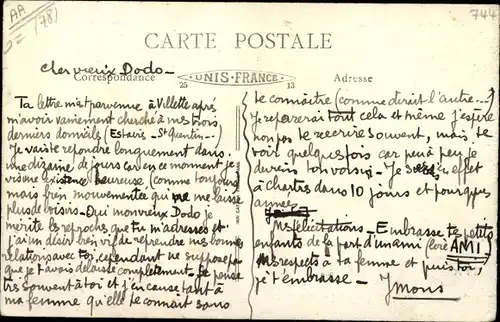 AA
(78)
744
CARTE POSTALE
Correspondance
UNIS-FRANCE
25
13
Adresse
Cher vieux Dodo -
Ta lettre m'est parvenue à Villette après
m'avoir vainement cherché à mes trois
derniers domiciles (Estavis - St Quentin...)
Je vais te répondre longuement dans
une dizaine de jours car en ce moment je
vis une existence heureuse (comme toujours)
mais bien mouvementée qui ne me laisse
plus de loisirs - Oui mon vieux Dodo je
mérite les reproches que tu m'adresses et
j'ai un désir bien vif de reprendre mes bonnes
relations avec toi, cependant ne suppose pas
que je t'avais délaissé complètement. Je pense
très souvent à toi et j'en cause tant à
ma femme qu'elle te connait sans
te connaître (comme dirait l'autre...)
Je réparerai tout cela et même j'espère
non pas te récrire souvent, mais te
voir quelquefois car peu à peu je
deviens ton voisin. Je en effet
à Chartres dans 10 jours et pour ques
années
Mes félicitations - Embrasse tes petits
enfants de la part d'un ami (
AMI)
Mes respects à ta femme et puis toi,
je t'embrasse -